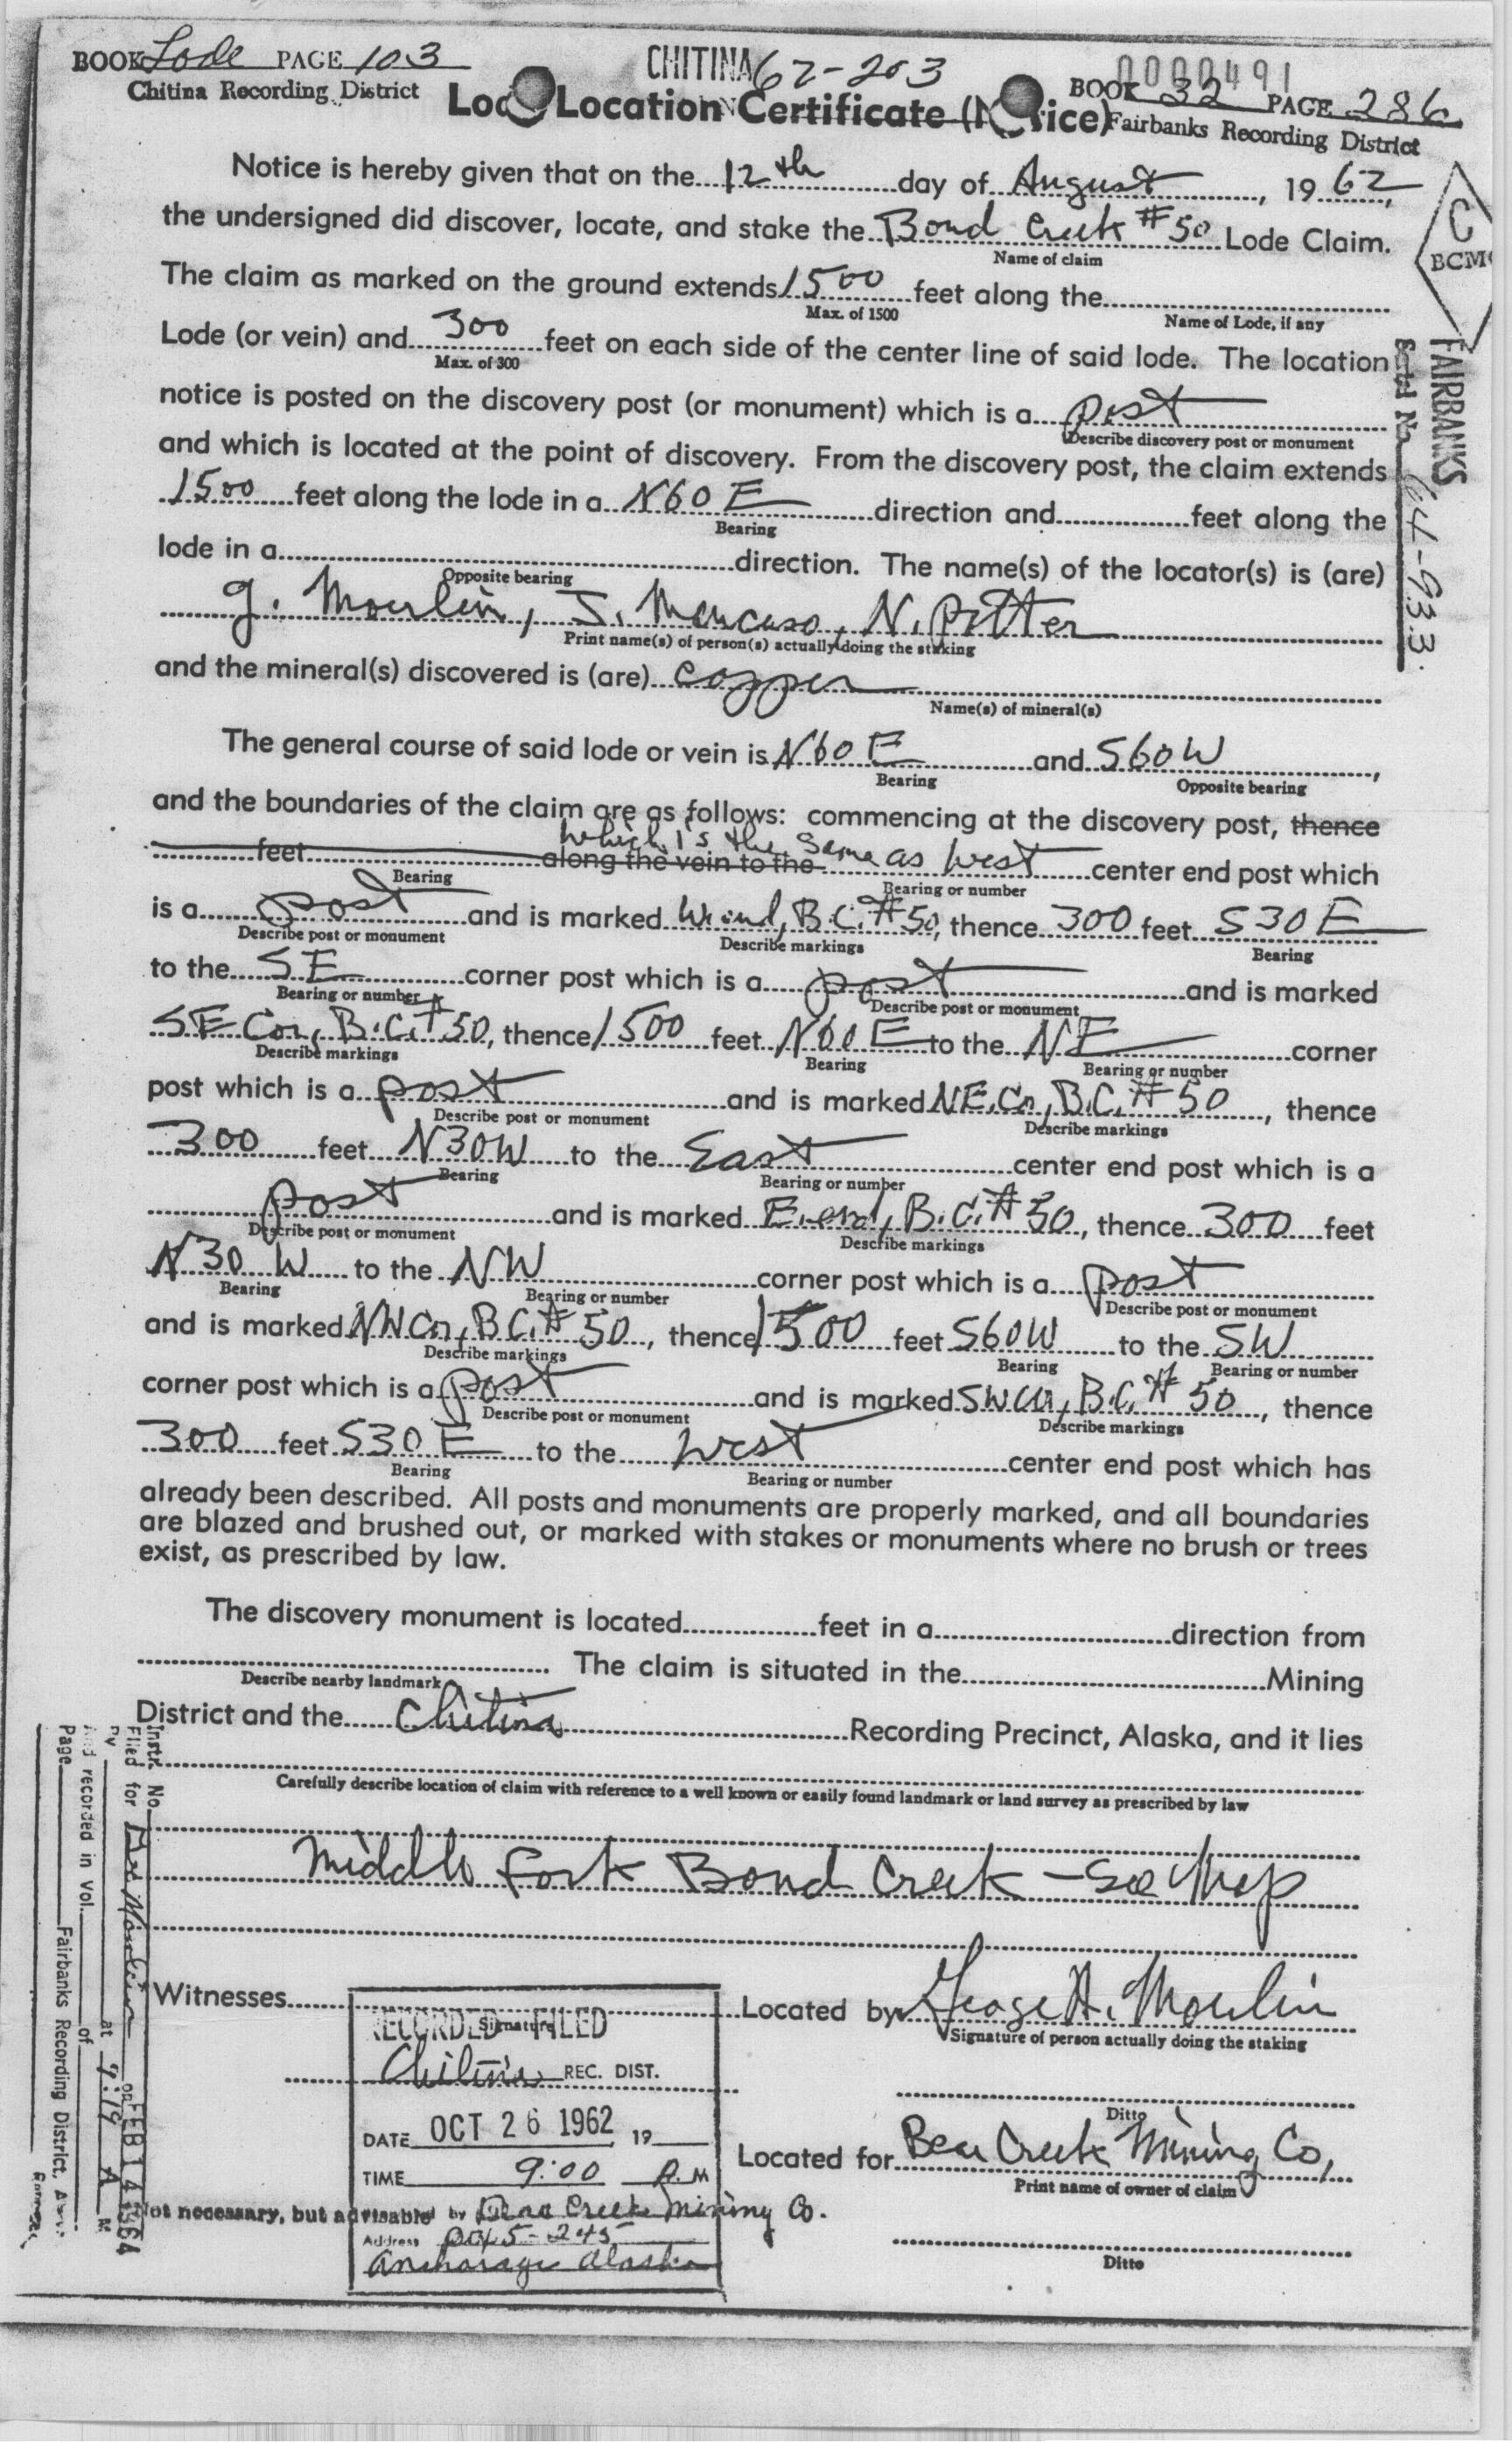 BOOK Lode PAGE 103
Chitina Recording District
CHITINA 62-203
0000491
BOOK 32 PAGE 286
Fairbanks Recording District
Location Certificate
Notice is hereby given that on the 12th day of August, 1962,
the undersigned did discover, locate, and stake the Bond Creek #50 Lode Claim.
Name of claim
The claim as marked on the ground extends 1500 feet along the
Max. of 1500 Name of Lode, if any
Lode (or vein) and 300 feet on each side of the center line of said lode. The location
Max. of 300
notice is posted on the discovery post (or monument) which is a post
Describe discovery post or monument
and which is located at the point of discovery. From the discovery post, the claim extends
1500 feet along the lode in a N60E direction and feet along the
Bearing
lode in a direction. The name(s) of the locator(s) is (are)
Opposite bearing
G. Moulin, J. Mancuso, N. Potter
Print name(s) of person(s) actually doing the staking
and the mineral(s) discovered is (are) copper
Name(s) of mineral(s)
The general course of said lode or vein is N60E and S60W,
Bearing Opposite bearing
and the boundaries of the claim are as follows: commencing at the discovery post, thence
which is the same as
feet along the vein to the West center end post which
Bearing Bearing or number
is a post and is marked W. end, B.C. #50, thence 300 feet S30E
Describe post or monument Describe markings Bearing
to the SE corner post which is a post and is marked
Bearing or number Describe post or monument
SE Cor, B.C. #50, thence 1500 feet N60E to the NE corner
Describe markings Bearing Bearing or number
post which is a post and is marked NE. Cr, B.C. #50, thence
Describe post or monument Describe markings
300 feet N30W to the East center end post which is a
Bearing Bearing or number
post and is marked E. end, B.C. #50, thence 300 feet
Describe post or monument Describe markings
N30W to the NW corner post which is a post
Bearing Bearing or number Describe post or monument
and is marked NW Cr, B.C. #50, thence 1500 feet S60W to the SW
Describe markings Bearing Bearing or number
corner post which is a post and is marked SW Cr, B.C. #50, thence
Describe post or monument Describe markings
300 feet S30E to the West center end post which has
Bearing Bearing or number
already been described. All posts and monuments are properly marked, and all boundaries
are blazed and brushed out, or marked with stakes or monuments where no brush or trees
exist, as prescribed by law.
The discovery monument is located feet in a direction from
The claim is situated in the Mining
Describe nearby landmark
District and the Chitina Recording Precinct, Alaska, and it lies
Carefully describe location of claim with reference to a well known or easily found landmark or land survey as prescribed by law
Middle Fork Bond Creek - See Map
Witnesses
Signature
Located by George A. Moulin
Signature of person actually doing the staking
Ditto
Located for Bear Creek Mining Co,
Print name of owner of claim
Ditto
RECORDED FILED
Chitina REC. DIST.
DATE OCT 26 1962 19
TIME 9:00 A.M
Not necessary, but advisable by Bear Creek Mining Co.
Address
Anchorage Alaska
C
BCMC
FAIRBANKS
64-933
Instr. No.
Filed for Geo Moulin on FEB 14 1964
By at 9:19 A M.
And recorded in Vol. of
Page Fairbanks Recording District,